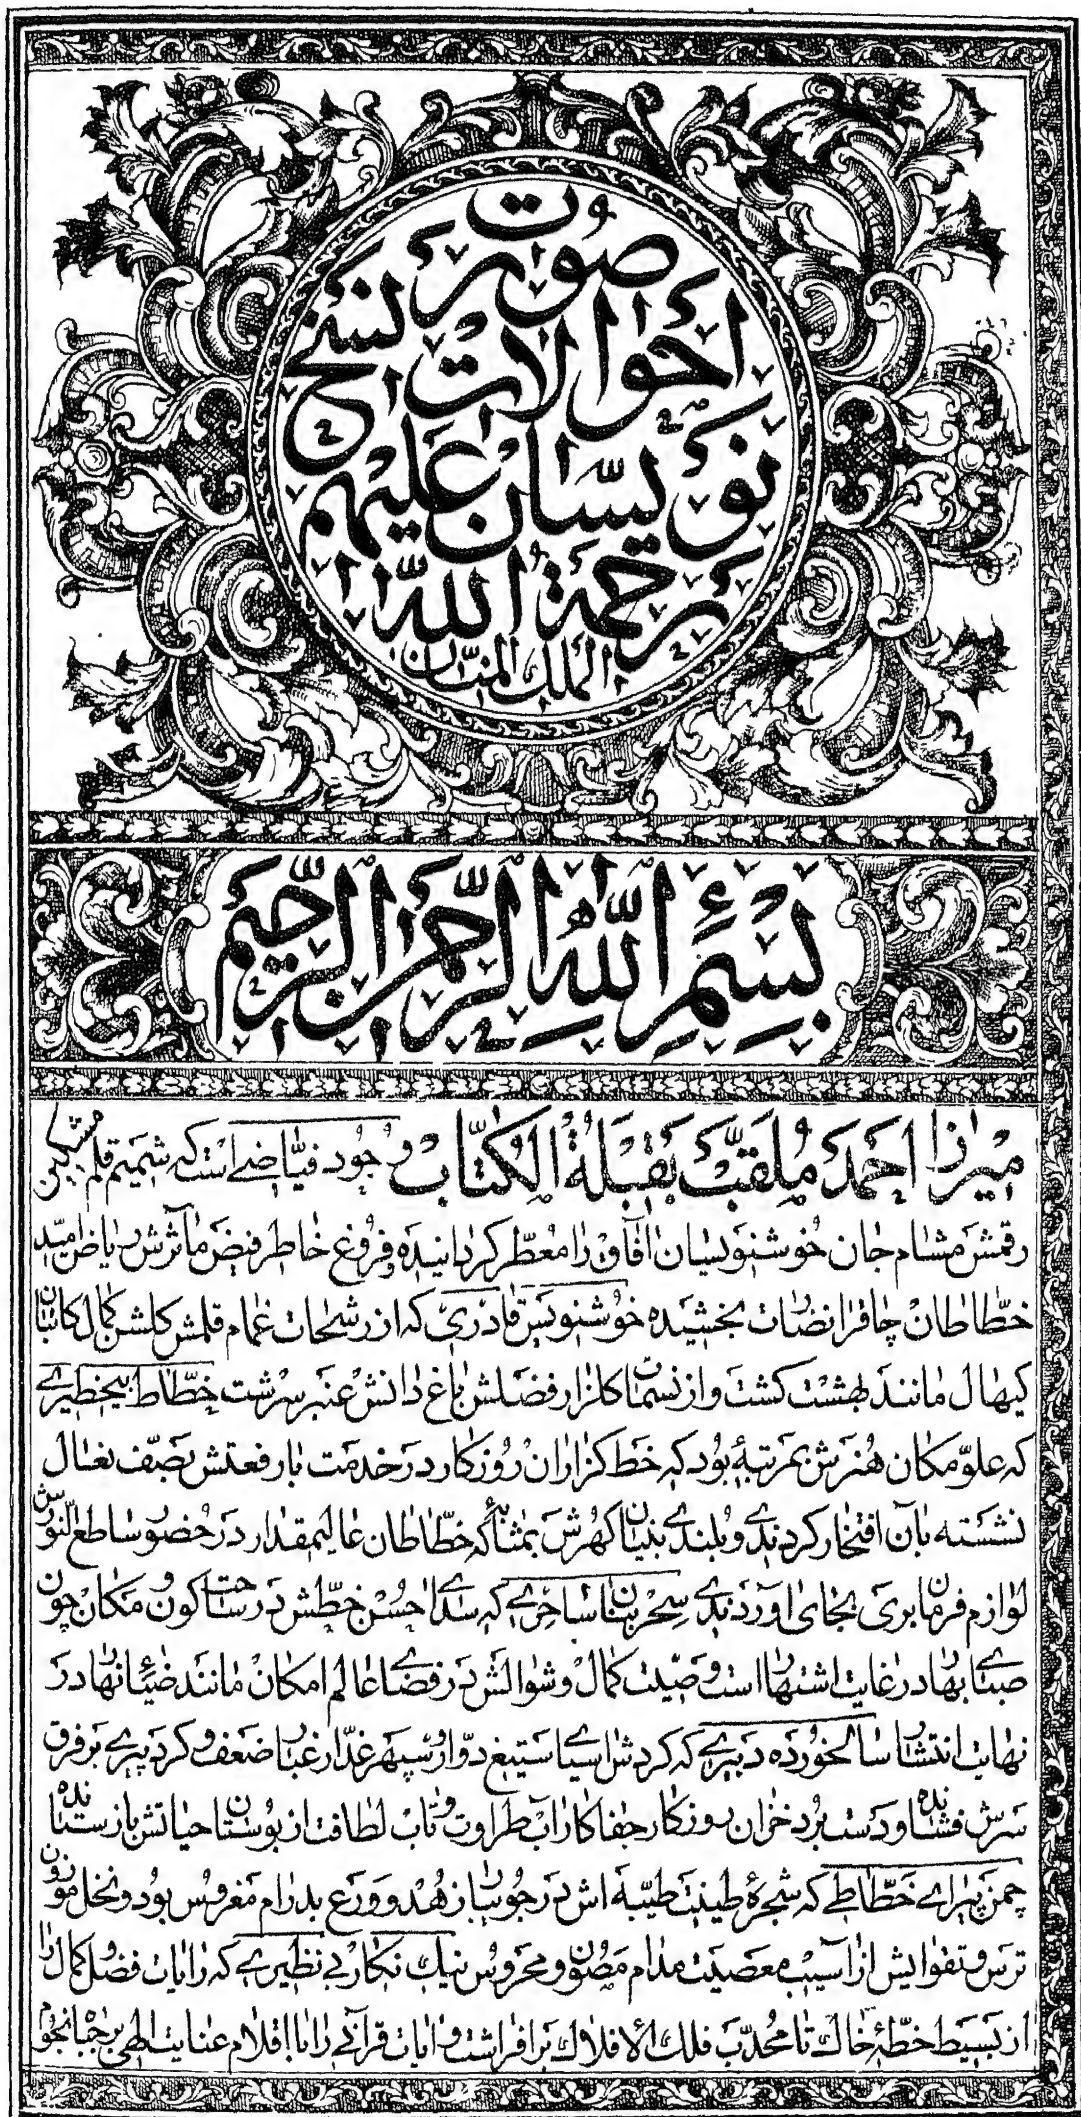 صورت
احوالات نسخ
نویسان علیهم
رحمة الله
الملك المنان
بسم الله الرحمن الرحیم
میرزا احمد ملقب بقبلة الکتاب وجود فیاضے است که شمیم قلم مشکین
رقمش مشام جان خوشنویسان آفاق را معطر کردانیده و فروغ خاطر فیض مآثرش ریاض امید
خطاطان چاقرا نضرات بخشیده خوشنویس قادری که از رشحات غمام قلمش کلشن کمال کاتبان
کیهان مانند بهشت کشت و از نسمات کلزار فضلش باغ دانش عنبر سرشت خطاط بیخطیرے
که علو مکان هنرش بمرتبهٔ بود که خط کزاران روزکار در خدمت بارفعتش بصف نعال
نشسته بآن افتخار کردندے و بلندے بنیان کهرش بمثابهٔ که خطاطان عالیمقدار در حضور ساطع النورش
لوازم فرمان بری بجای آوردندے سحر بنان ساحرے که صداے حسن خطش در ساحت کون و مکان چون
صیت بهار در غایت اشتهار است و صیت کمال و شوالش در فضاے عالم امکان مانند ضیاء نهار در
نهایت انتشار سالخورده دبیرے که کردش آسیاے ستیغ دوار سپهر غدار غبار ضعف و کرد پیرے بر فرق
سرش فشانده و دست برد خزان روزکار جفاکار آب طراوت و تاب لطافت از بوستان حیاتش بازستانده
چمن پیراے خطاطے که شجرهٔ طینت طیبه اش در جویبار زهد و ورع بدرام مغروس بود و نخل موزون
ترس و تقوایش از آسیب معصیت مدام مصون و محروس نیك نکار بے نظیرے که رایات فضل و کمال را
از بسیط خطهٔ خاك تا محدب فلك الافلاك بر افراشت و آیات قرآنے را با اقلام عنایت الهی بر جباه نجوم